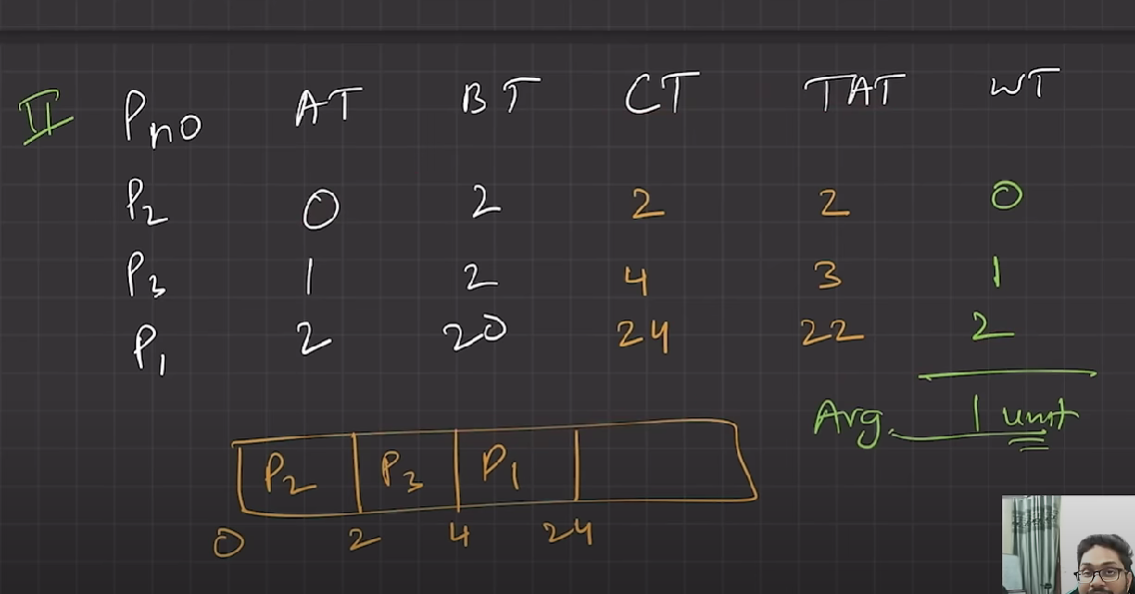 II Pno AT BT CT TAT WT
P2 0 2 2 2 0
P3 1 2 4 3 1
P1 2 20 24 22 2
Avg. 1 unit
P2 P3 P1
0 2 4 24